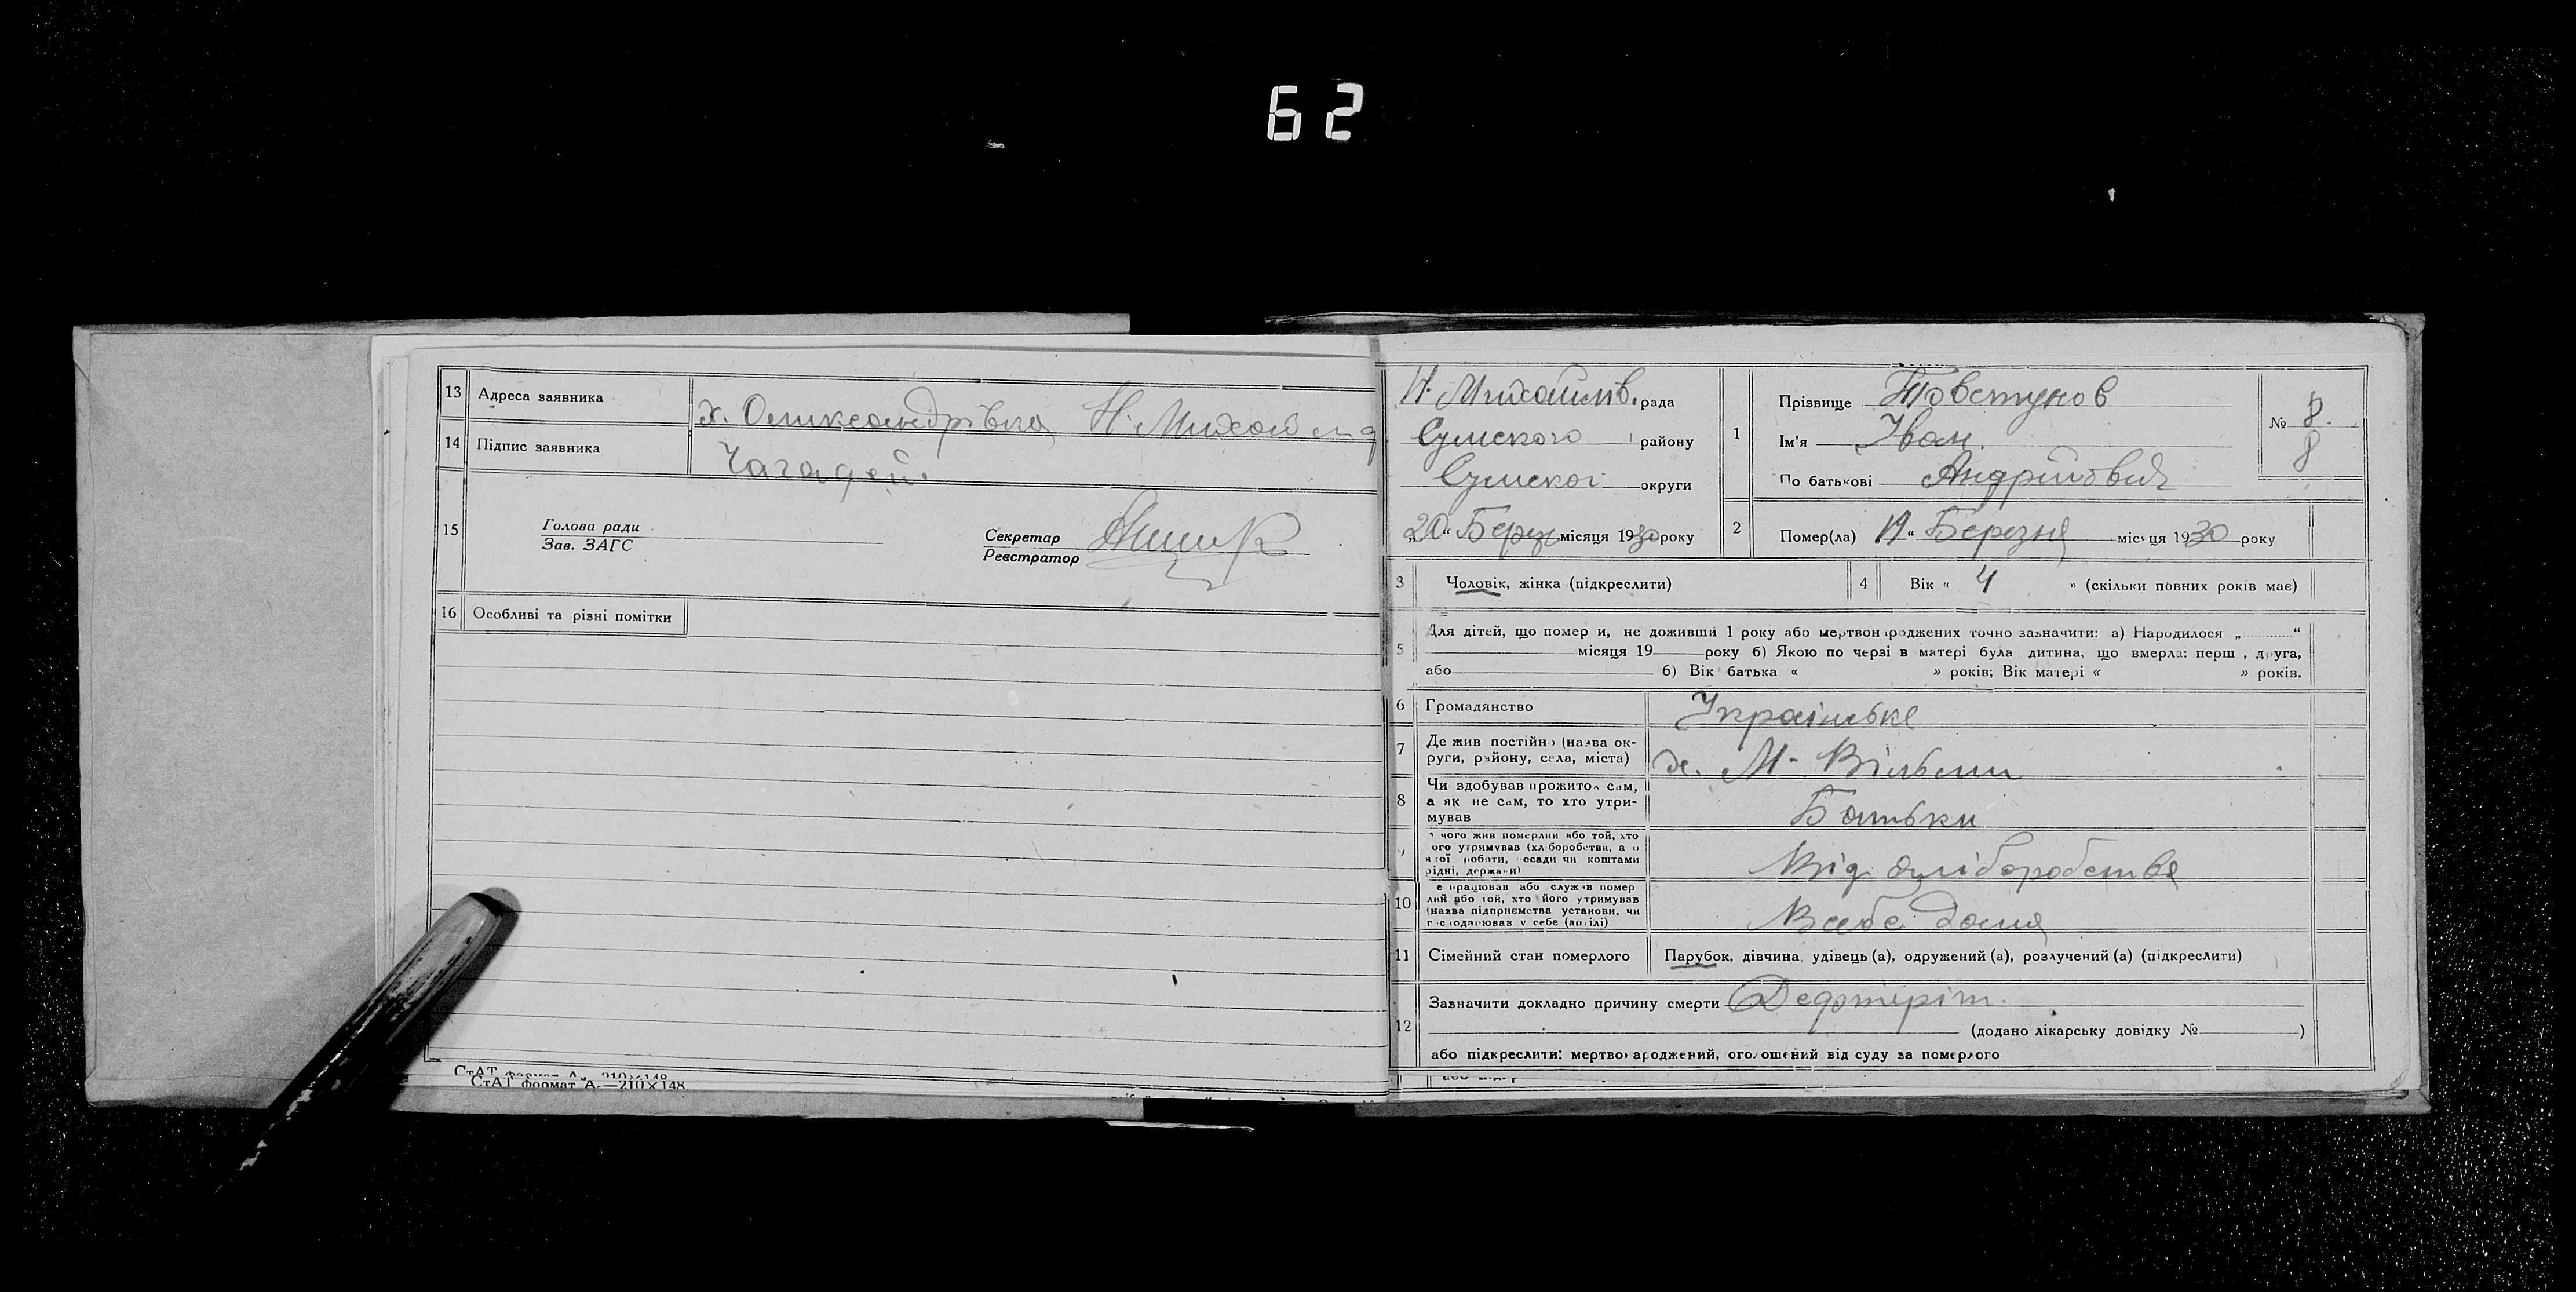 62
13 Адреса заявника х. Олександрівка Н. Михайл
14 Підпис заявника
15 Голова ради
Зав. ЗАГС
Секретар
Реєстратор
16 Особливі та різні помітки
СтАТ формат А
СтАТ формат А.—210×148
Н. Михайлів. рада
Сумского району
Сумскої округи
„20“ Березн місяця 1930 року
1 Прізвище Товстунов
Ім'я Іван.
По батькові Андрійович
№ 8.
8
2 Помер(ла) 19“ Березня місяця 1930 року
3 Чоловік, жінка (підкреслити)
4 Вік « 4 » (скільки повних років має)
5 Для дітей, що помер и, не доживши 1 року або мертвонароджених точно зазначити: а) Народилося „ “
місяця 19 року б) Якою по черзі в матері була дитина, що вмерла: перш , друга,
або б) Вік батька « » років; Вік матері « » років.
6 Громадянство Українське
7 Де жив постійно (назва ок-
руги, району, села, міста) х. М- Вільми
8 Чи здобував прожиток сам,
а як не сам, то хто утри-
мував Батьки
9 чого жив померлий або той, хто
ого утримував (хліборобства, а о
якої роботи, посади чи коштами
рідні, держави) Від хліборобства
10 е працював або служив помер
лий або той, хто його утримував
(назва підприємства установи, чи
господарював у себе (вдома)
11 Сімейний стан померлого Парубок, дівчина, удівець(а), одружений(а), розлучений(а) (підкреслити)
12 Зазначити докладно причину смерти Дефтеріт.
(додано лікарську довідку № )
або підкреслити: мертвонароджений, оголошений від суду за померлого